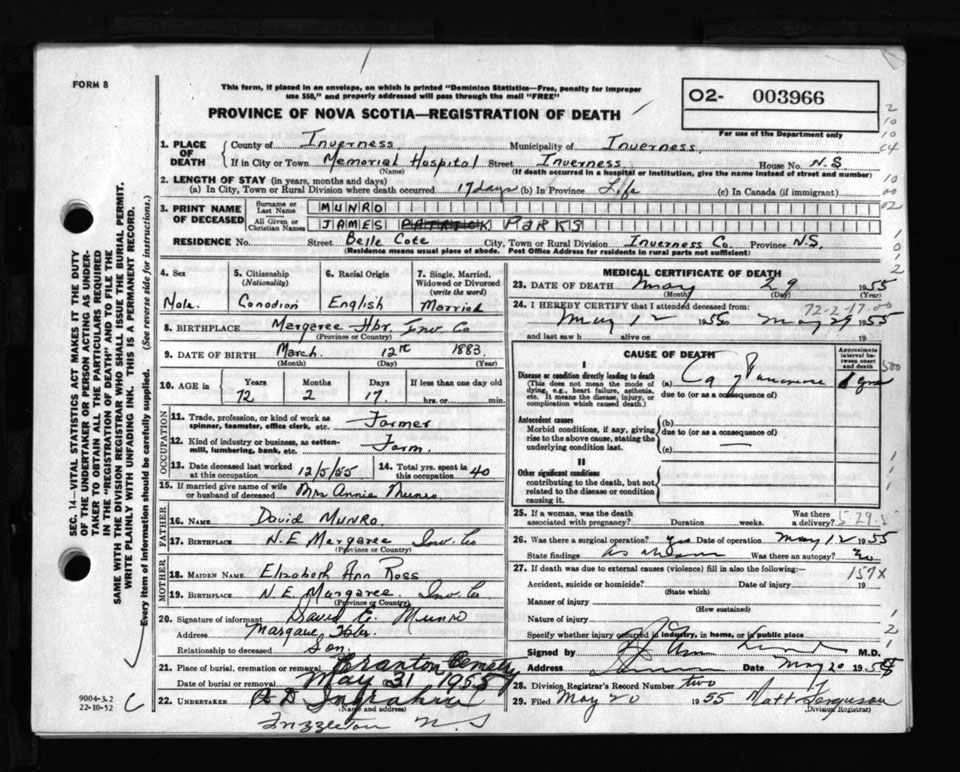 FORM 8
This form, if placed in an envelope, on which is printed "Dominion Statistics—Free, penalty for improper
use $50," and properly addressed will pass through the mail "FREE"
PROVINCE OF NOVA SCOTIA—REGISTRATION OF DEATH
O2- 003966
For use of the Department only
1. PLACE OF DEATH
County of Inverness Municipality of Inverness
If in City or Town Memorial Hospital Street Inverness House No. N.S.
(Name) (If death occurred in a hospital or institution, give the name instead of street and number)
2. LENGTH OF STAY (in years, months and days)
(a) In City, Town or Rural Division where death occurred 17 days (b) In Province Life (c) In Canada (if immigrant)
3. PRINT NAME OF DECEASED
Surname or Last Name MUNRO
All Given or Christian Names JAMES PATRICK PARKS
RESIDENCE No. Street Belle Cote City, Town or Rural Division Inverness Co. Province N.S.
(Residence means usual place of abode. Post Office Address for residents in rural parts not sufficient)
4. Sex Male
5. Citizenship (Nationality) Canadian
6. Racial Origin English
7. Single, Married, Widowed or Divorced (write the word) Married
8. BIRTHPLACE Margaree Hbr. Inv. Co
(Province or Country)
9. DATE OF BIRTH March 12th 1883
(Month) (Day) (Year)
10. AGE in Years Months Days If less than one day old
72 2 17 hrs. or min.
OCCUPATION
11. Trade, profession, or kind of work as
spinner, teamster, office clerk, etc. Farmer
12. Kind of industry or business, as cotton-
mill, lumbering, bank, etc. Farm
13. Date deceased last worked
at this occupation 12/5/55
14. Total yrs. spent in
this occupation 40
15. If married give name of wife
or husband of deceased Mrs Annie Munro
FATHER
16. NAME David MUNRO
17. BIRTHPLACE N.E Margaree Inv. Co
(Province or Country)
MOTHER
18. MAIDEN NAME Elizabeth Ann Ross
19. BIRTHPLACE N.E. Margaree. Inv. Co
(Province or Country)
20. Signature of informant David E. Munro
Address Margaree Hbr.
Relationship to deceased Son.
21. Place of burial, cremation or removal Cemetery
Date of burial or removal May 31 1955
22. UNDERTAKER A D Ingraham
(Name and address)
Frizzleton N S
MEDICAL CERTIFICATE OF DEATH
23. DATE OF DEATH May 29 1955
(Month) (Day) (Year)
72-2-17.00
24. I HEREBY CERTIFY that I attended deceased from:
May 12 1955 to May 29 1955
and last saw h alive on
CAUSE OF DEATH
Approximate interval between onset and death
I
Disease or condition directly leading to death
(This does not mean the mode of
dying, e.g., heart failure, asthenia,
etc. It means the disease, injury, or
complication which caused death.)
(a) Ca
due to (or as a consequence of)
Antecedent causes
Morbid conditions, if any, giving
rise to the above cause, stating the
underlying condition last.
(b)
due to (or as a consequence of)
(c)
II
Other significant conditions
contributing to the death, but not
related to the disease or condition
causing it.
25. If a woman, was the death
associated with pregnancy? Duration weeks. Was there a delivery?
26. Was there a surgical operation? Yes Date of operation May 12 1955
State findings as above Was there an autopsy? no
27. If death was due to external causes (violence) fill in also the following:—
157X
Accident, suicide or homicide? Date of injury 19
(State which)
Manner of injury
(How sustained)
Nature of injury
Specify whether injury occurred in industry, in home, or in public place
Signed by M.D.
Address Date May 20 195
28. Division Registrar's Record Number two
29. Filed May 20 1955 Matt Ferguson
(Division Registrar)
SEC. 14—VITAL STATISTICS ACT MAKES IT THE DUTY
OF THE UNDERTAKER OR PERSON ACTING AS UNDER-
TAKER TO OBTAIN ALL THE PARTICULARS REQUIRED
IN THE "REGISTRATION OF DEATH" AND TO FILE THE
SAME WITH THE DIVISION REGISTRAR WHO SHALL ISSUE THE BURIAL PERMIT.
WRITE PLAINLY WITH UNFADING INK. THIS IS A PERMANENT RECORD.
Every item of information should be carefully supplied. (See reverse side for instructions.)
9004-3.2
22-10-52